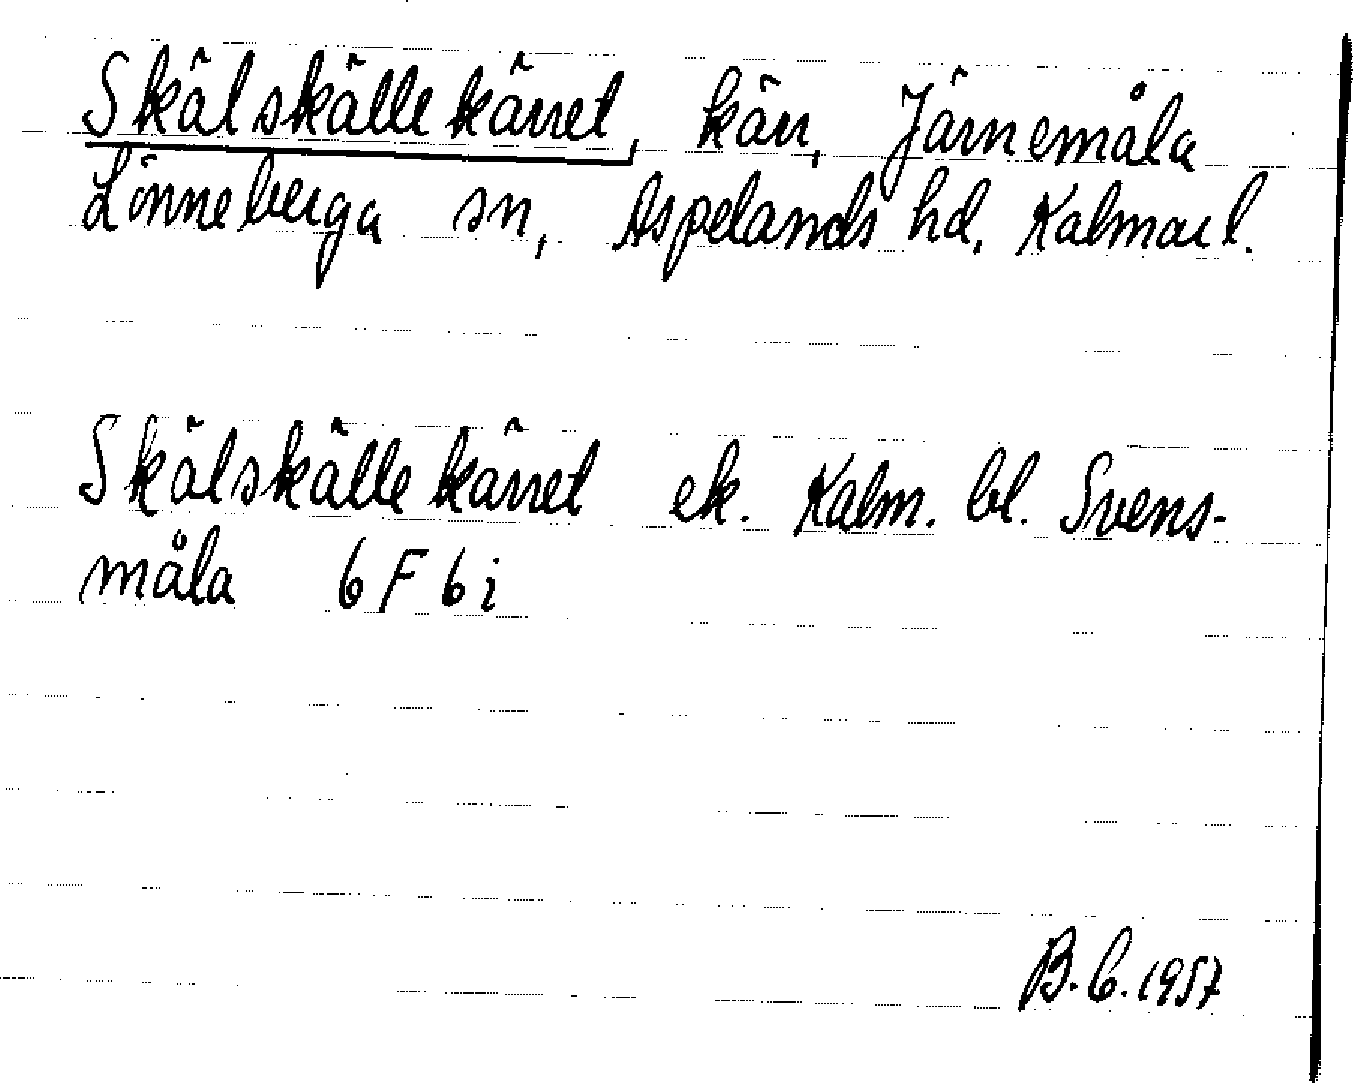 Skälskällekärret, kärr, Järnemåla
Lönneberga sn, Aspelands hd, Kalmar l.
Skälskällekärret ek. Kalm. bl. Svens-
måla 6 F 6 i
B.C. 1957